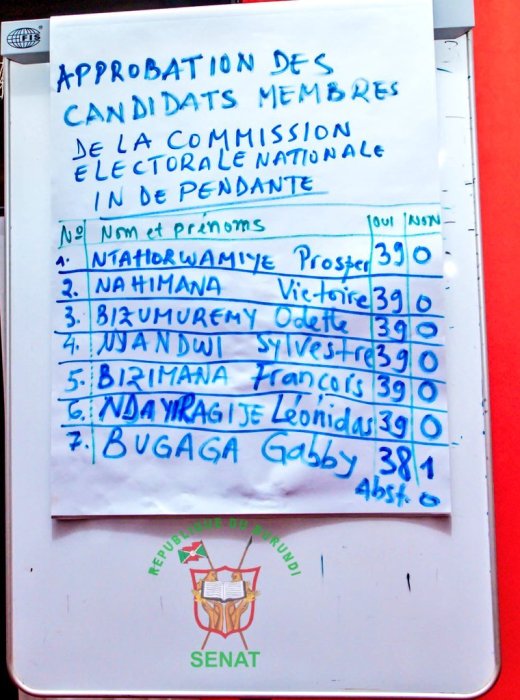 FIS
APPROBATION DES
CANDIDATS MEMBRES
DE LA COMMISSION
ELECTORALE NATIONALE
INDEPENDANTE
No Nom et prénoms OUI NON
1. NTAHORWAMIYE Prosper 39 0
2. NAHIMANA Victoire 39 0
3. BIZUMUREMY Odette 39 0
4. NYANDWI Sylvestre 39 0
5. BIZIMANA François 39 0
6. NDAYIRAGIJE Léonidas 39 0
7. BUGAGA Gabby 38 1
Abst. 0
REPUBLIQUE DU BURUNDI
SENAT